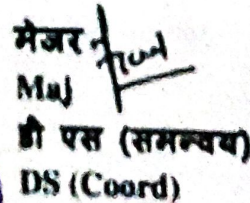 मेजर
Maj
डी एस (समन्वय)
DS (Coord)